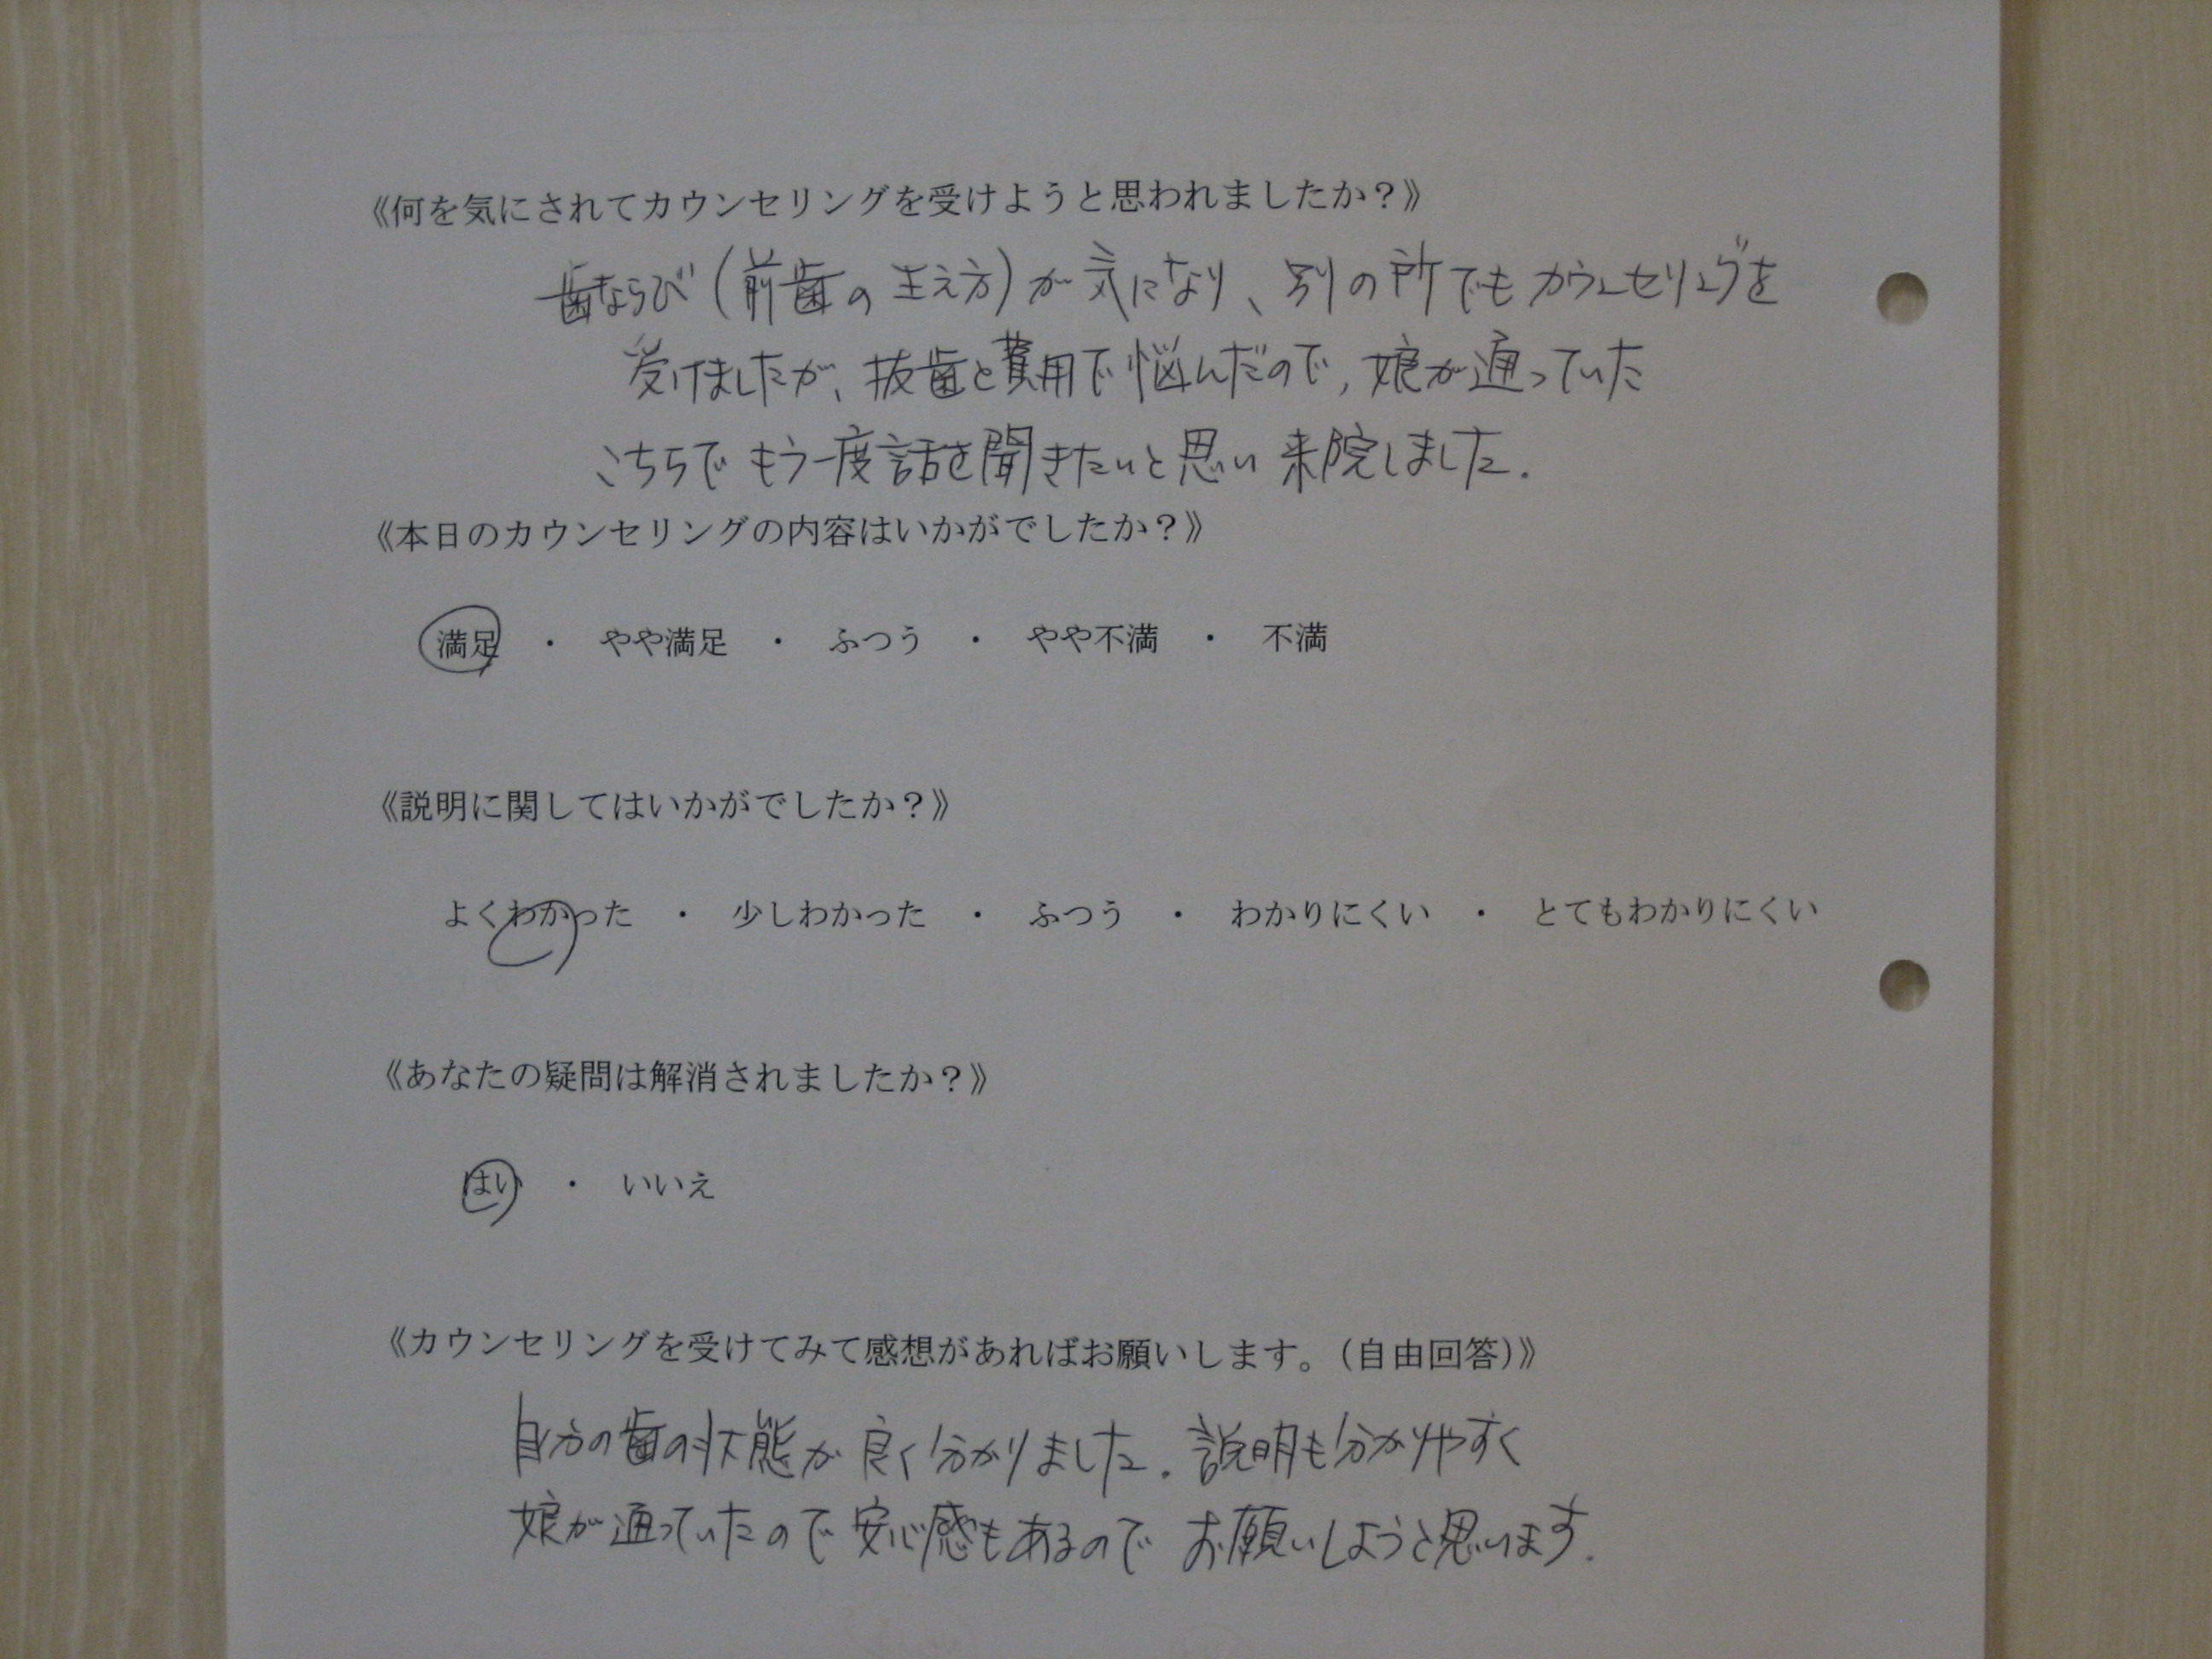 《何を気にされてカウンセリングを受けようと思われましたか？》
歯ならび(前歯の生え方)が気になり、別の所でもカウンセリングを
受けましたが、抜歯と費用で悩んだので、娘が通っていた
こちらでもう一度話を聞きたいと思い来院しました.
《本日のカウンセリングの内容はいかがでしたか？》
満足 ・ やや満足 ・ ふつう ・ やや不満 ・ 不満
《説明に関してはいかがでしたか？》
よくわかった ・ 少しわかった ・ ふつう ・ わかりにくい ・ とてもわかりにくい
《あなたの疑問は解消されましたか？》
はい ・ いいえ
《カウンセリングを受けてみて感想があればお願いします。（自由回答）》
自分の歯の状態が良く分かりました. 説明も分かりやすく
娘が通っていたので安心感もあるのでお願いしようと思います.